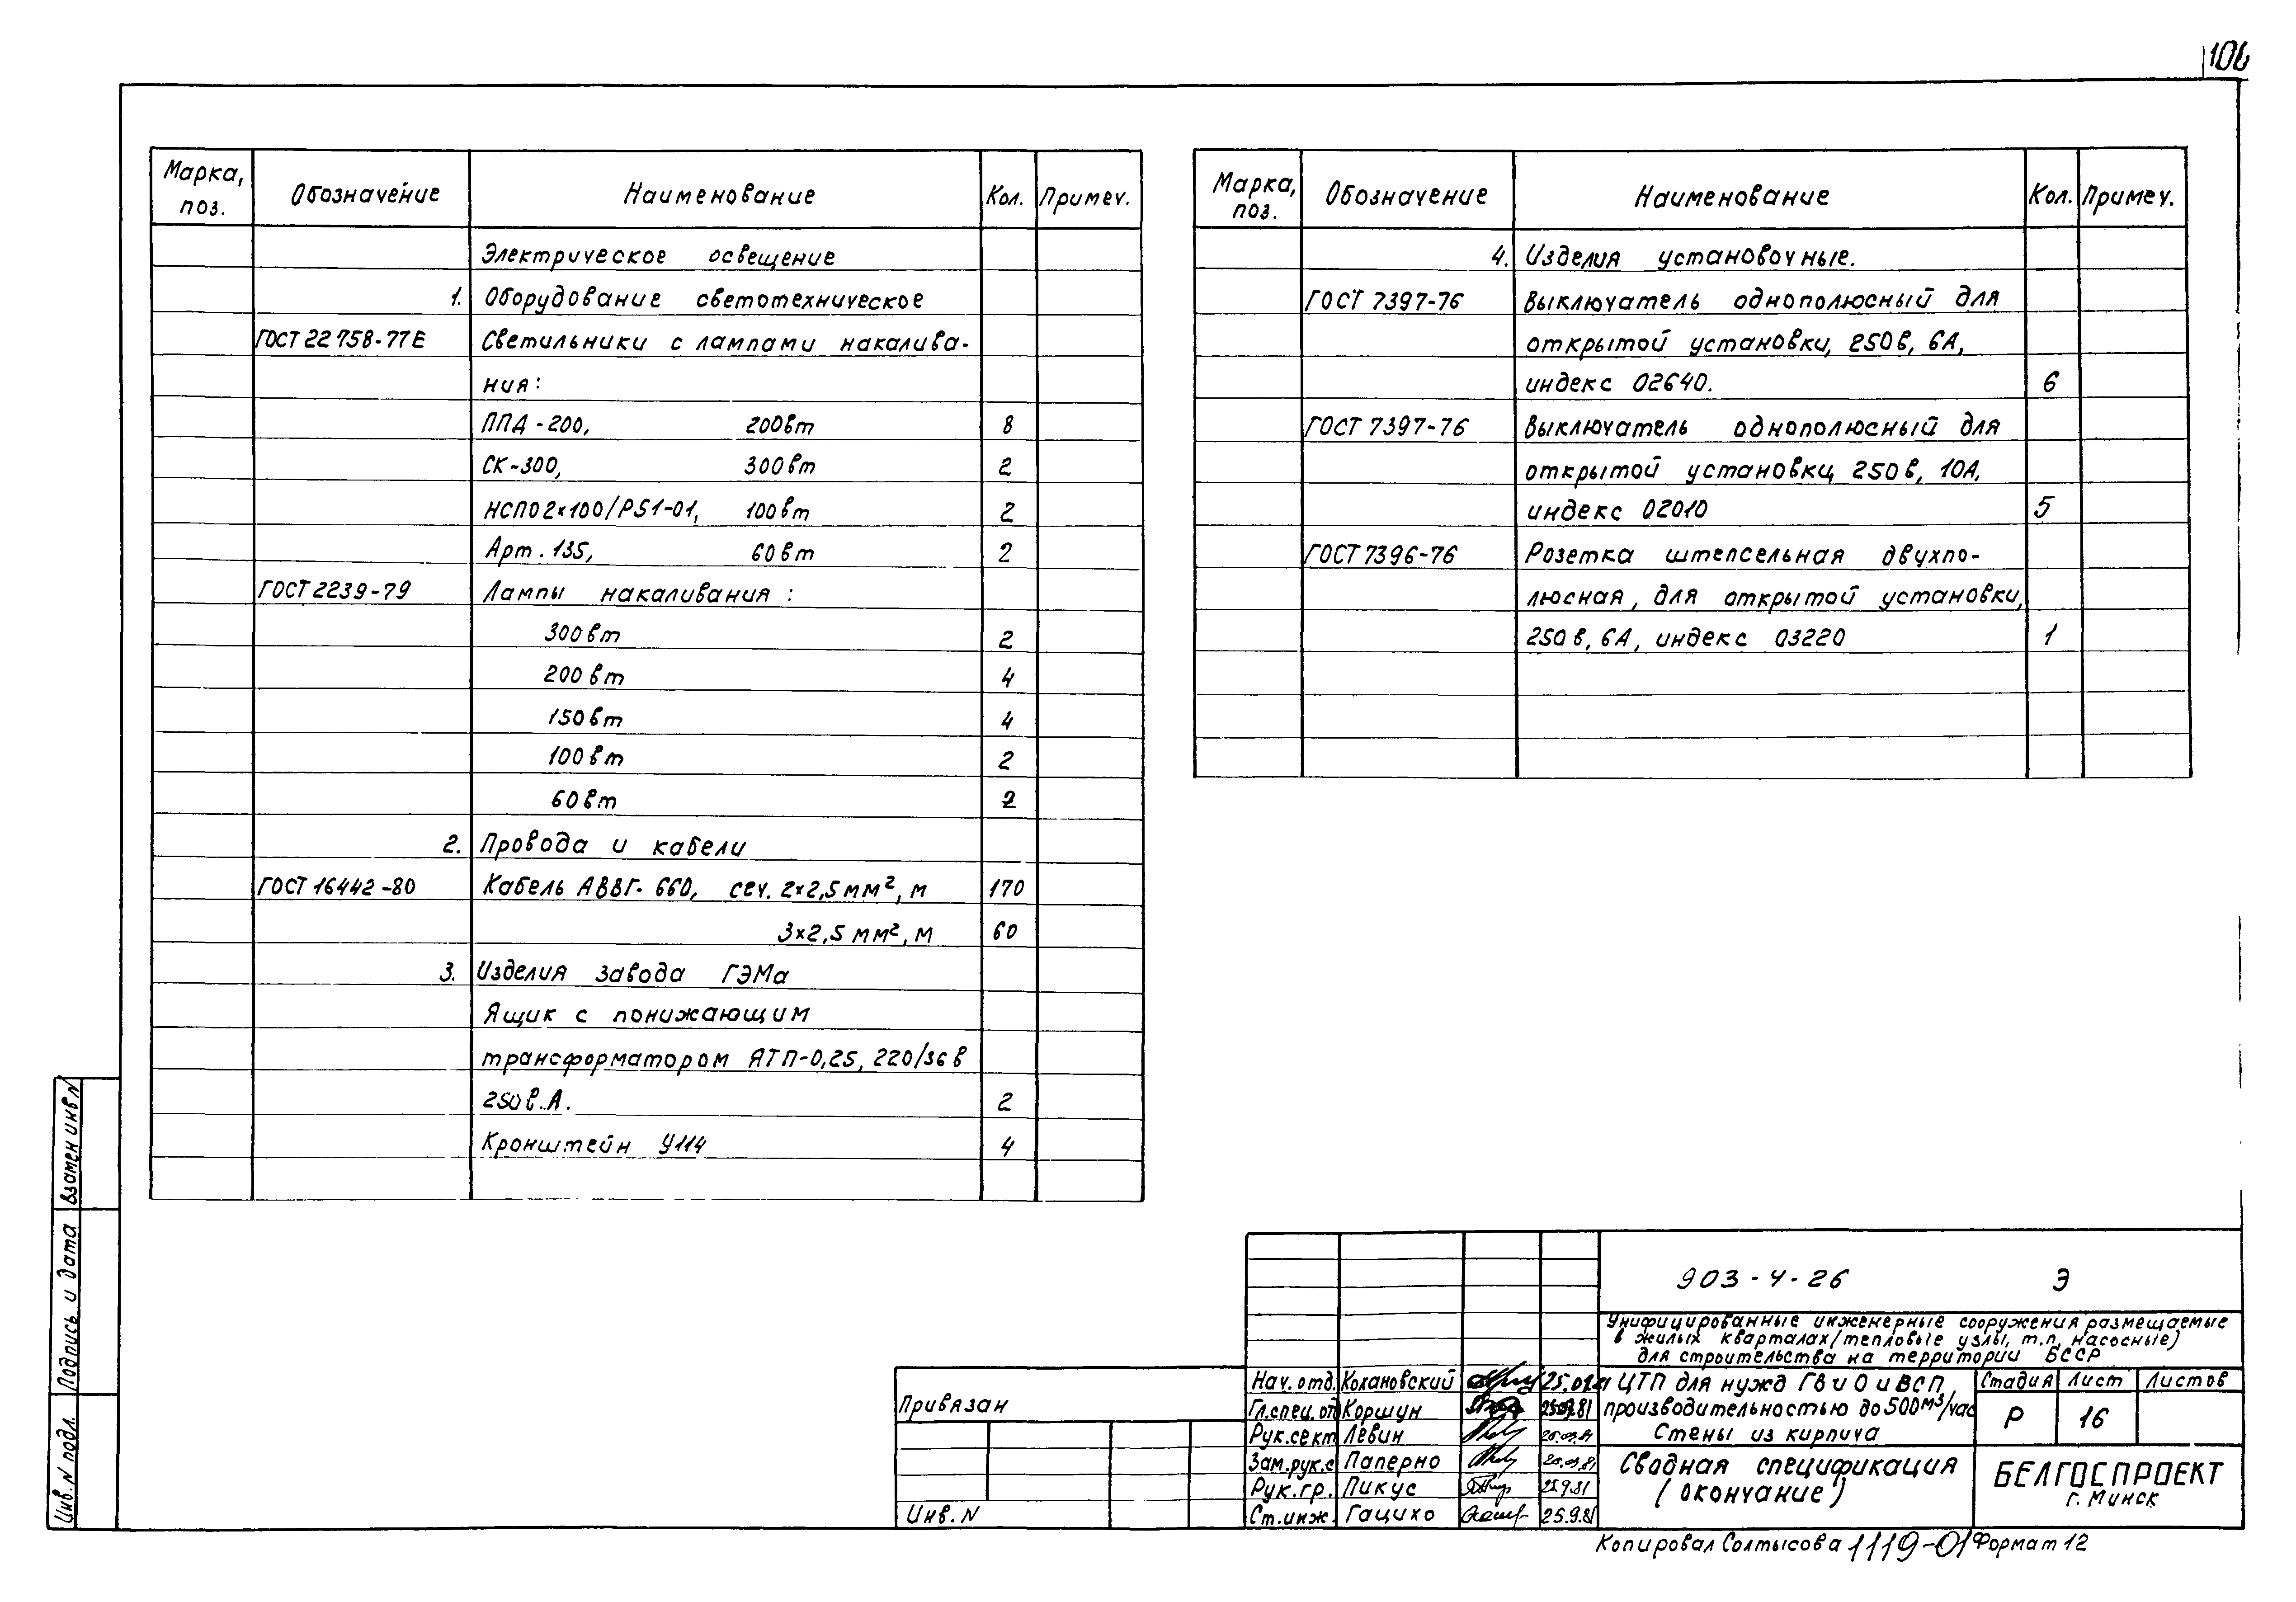 106
Марка, поз. Обозначение Наименование Кол. Примеч.
Электрическое освещение
1. Оборудование светотехническое
ГОСТ 22758-77Е Светильники с лампами накалива-
ния:
ППД-200, 200вт 8
СК-300, 300вт 2
НСП02×100/Р51-01, 100вт 2
Арт. 135, 60вт 2
ГОСТ 2239-79 Лампы накаливания:
300вт 2
200вт 4
150вт 4
100вт 2
60вт 2
2. Провода и кабели
ГОСТ 16442-80 Кабель АВВГ-660, сеч. 2×2,5мм², м 170
3×2,5мм², м 60
3. Изделия завода ГЭМа
Ящик с понижающим
трансформатором ЯТП-0,25, 220/36в
250в.А. 2
Кронштейн У114 4
Марка, поз. Обозначение Наименование Кол. Примеч.
4. Изделия установочные.
ГОСТ 7397-76 Выключатель однополюсный для
открытой установки, 250в, 6А,
индекс 02640. 6
ГОСТ 7397-76 Выключатель однополюсный для
открытой установки, 250в, 10А,
индекс 02010 5
ГОСТ 7396-76 Розетка штепсельная двухпо-
люсная, для открытой установки,
250в, 6А, индекс 03220 1
Взамен инв N
Подпись и дата
Инв. N подл.
Привязан
Инв. N
903-4-26 Э
Унифицированные инженерные сооружения размещаемые
в жилых кварталах/тепловые узлы, т.п, насосные)
для строительства на территории БССР
Нач. отд. Кохановский
Гл.спец. отд Коршун
Рук.сект Левин
Зам.рук.с Паперно
Рук.гр. Пикус 25.9.81
Ст.инж. Гацихо 25.9.81
ЦТП для нужд ГВ и О и ВСП
производительностью до 500м³/час
Стены из кирпича
Стадия Лист Листов
Р 16
Сводная спецификация
(окончание)
БЕЛГОСПРОЕКТ
г. Минск
Копировал Солтысова 1119-01 Формат 12